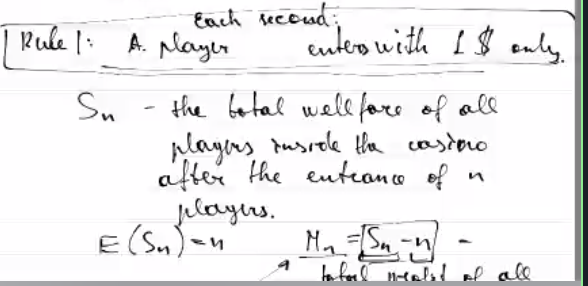 Each second:
Rule 1: A. player enters with 1 $ only.
Sn - the total wellfare of all
players inside the casino
after the entrance of n
players.
E(Sn)=n Mn = Sn-n -
total of all